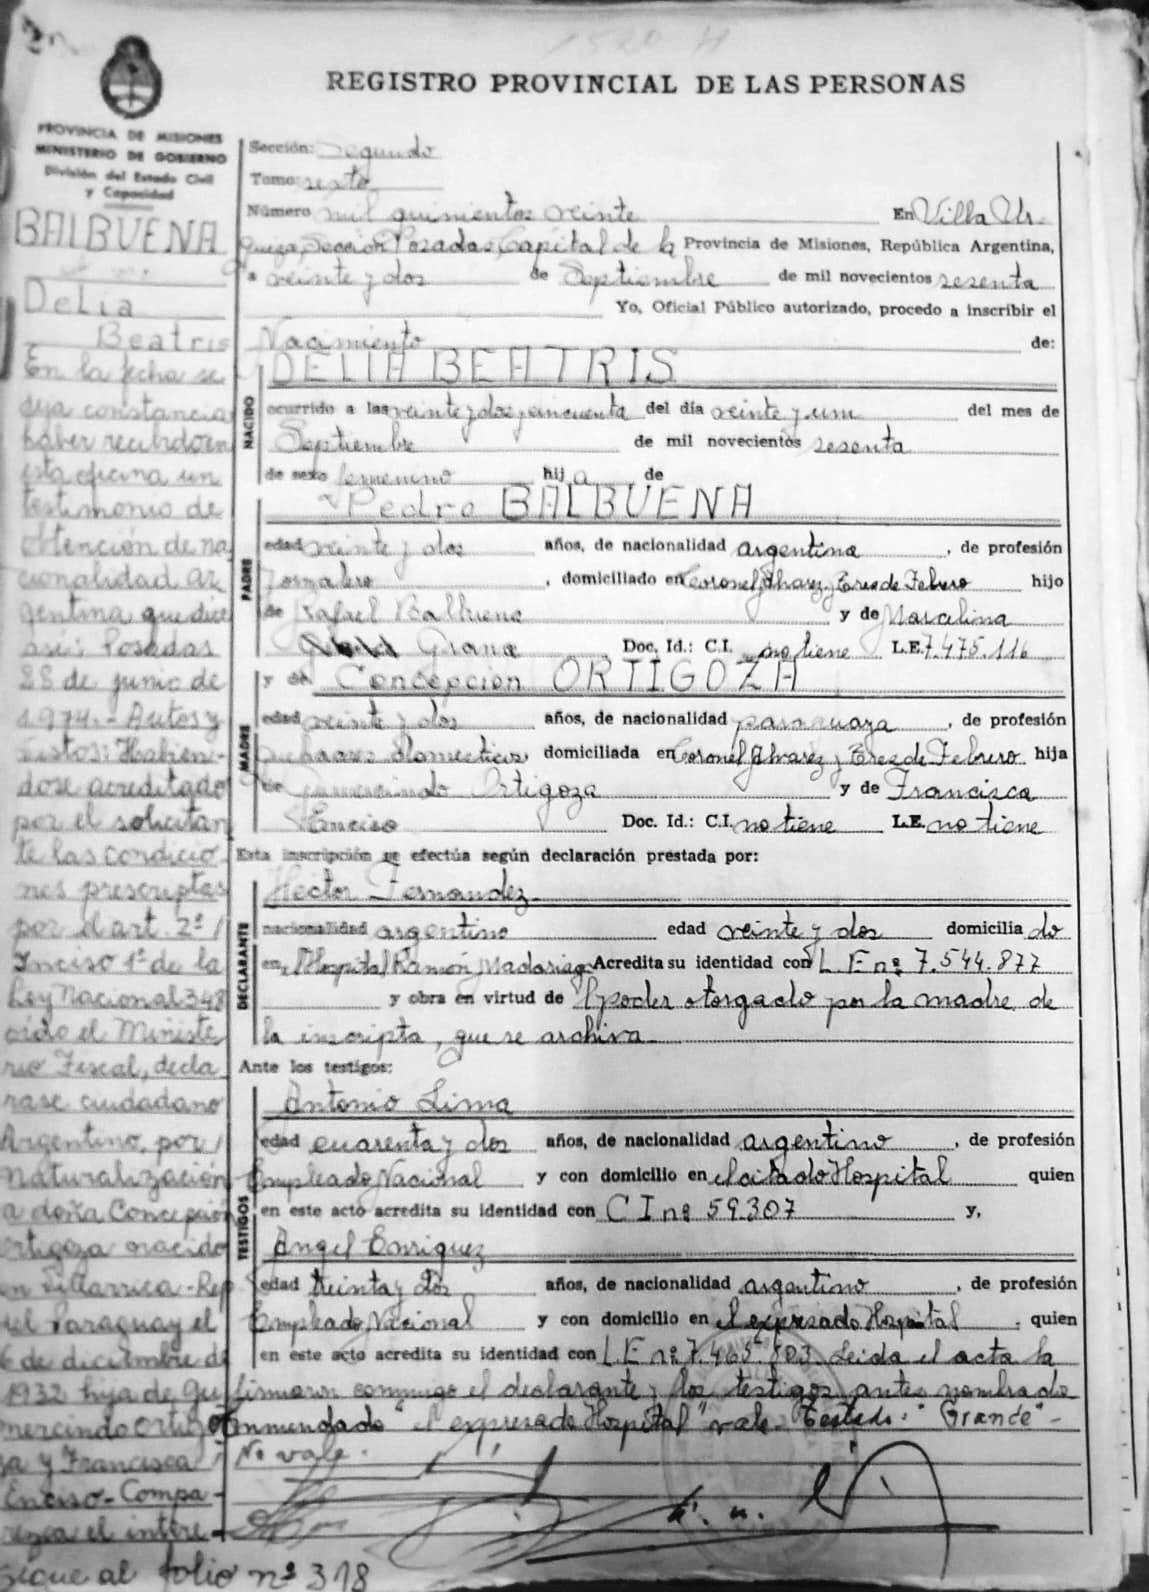 REGISTRO PROVINCIAL DE LAS PERSONAS
PROVINCIA DE MISIONES
MINISTERIO DE GOBIERNO
División del Estado Civil
y Capacidad
BALBUENA
Delia
Beatris
En la fecha se
deja constancia
haber recibido en
esta oficina un
testimonio de
obtención de na
cionalidad ar
gentina que dice
así: Posadas
28 de junio de
1974.- Autos y
vistos: Habien-
dose acreditado
por el solicitan
te las condicio
nes prescriptas
por el art. 2º /
Inciso 1º de la
Ley Nacional 346
oído el Ministe
rio Fiscal, decla
rase ciudadano
Argentino, por /
Naturalización
a doña Concepción
Ortigoza nacido
en Villarrica - Rep
del Paraguay el
6 de diciembre de
1932 hija de Gu
mercindo Ortigo
za y Francisca /
Enciso - Compa-
rezca el intere-
sigue al folio nº 318
Sección: Segundo
Tomo: sexto
Número mil quinientos veinte En Villa Ur-
quiza, Sección Posadas, Capital de la Provincia de Misiones, República Argentina,
a veinte y dos de Septiembre de mil novecientos sesenta
Yo, Oficial Público autorizado, procedo a inscribir el
Nacimiento de:
NACIDO
DELIA BEATRIS
ocurrido a las veinte y dos y cincuenta del día veinte y un del mes de
Septiembre de mil novecientos sesenta
de sexo femenino hij a de
PADRE
Pedro BALBUENA
edad veinte y dos años, de nacionalidad argentina, de profesión
Jornalero, domiciliado en Coronel Alvarez y Tres de Febrero hijo
de Rafael Balbuena y de Marcelina
Grance Doc. Id.: C.I. no tiene L.E. 7.475.116
MADRE
y de Concepción ORTIGOZA
edad veinte y dos años, de nacionalidad paraguaya, de profesión
quehaceres domésticos, domiciliada en Coronel Alvarez y Tres de Febrero hija
de Gumercindo Ortigoza y de Francisca
Enciso Doc. Id.: C.I. no tiene L.E. no tiene
Esta inscripción se efectúa según declaración prestada por:
DECLARANTE
Hector Fernandez
nacionalidad argentino edad veinte y dos domicilia do
en el Hospital Ramón Madariaga Acredita su identidad con L. E nº 7.544.877
y obra en virtud de el poder otorgado por la madre de
la inscripta, que se archiva
Ante los testigos:
TESTIGOS
Antonio Lima
edad cuarenta y dos años, de nacionalidad argentino, de profesión
Empleado Nacional y con domicilio en el citado Hospital quien
en este acto acredita su identidad con C I nº 59.307 y,
Angel Enriquez
edad treinta y dos años, de nacionalidad argentino, de profesión
Empleado Nacional y con domicilio en el expresado Hospital, quien
en este acto acredita su identidad con L. E nº 7.465.803. Leida el acta la
firmaron conmigo el declarante y los testigos antes nombrado
Enmendado "el expresado Hospital" vale - Testado: "Grande"-
No vale.